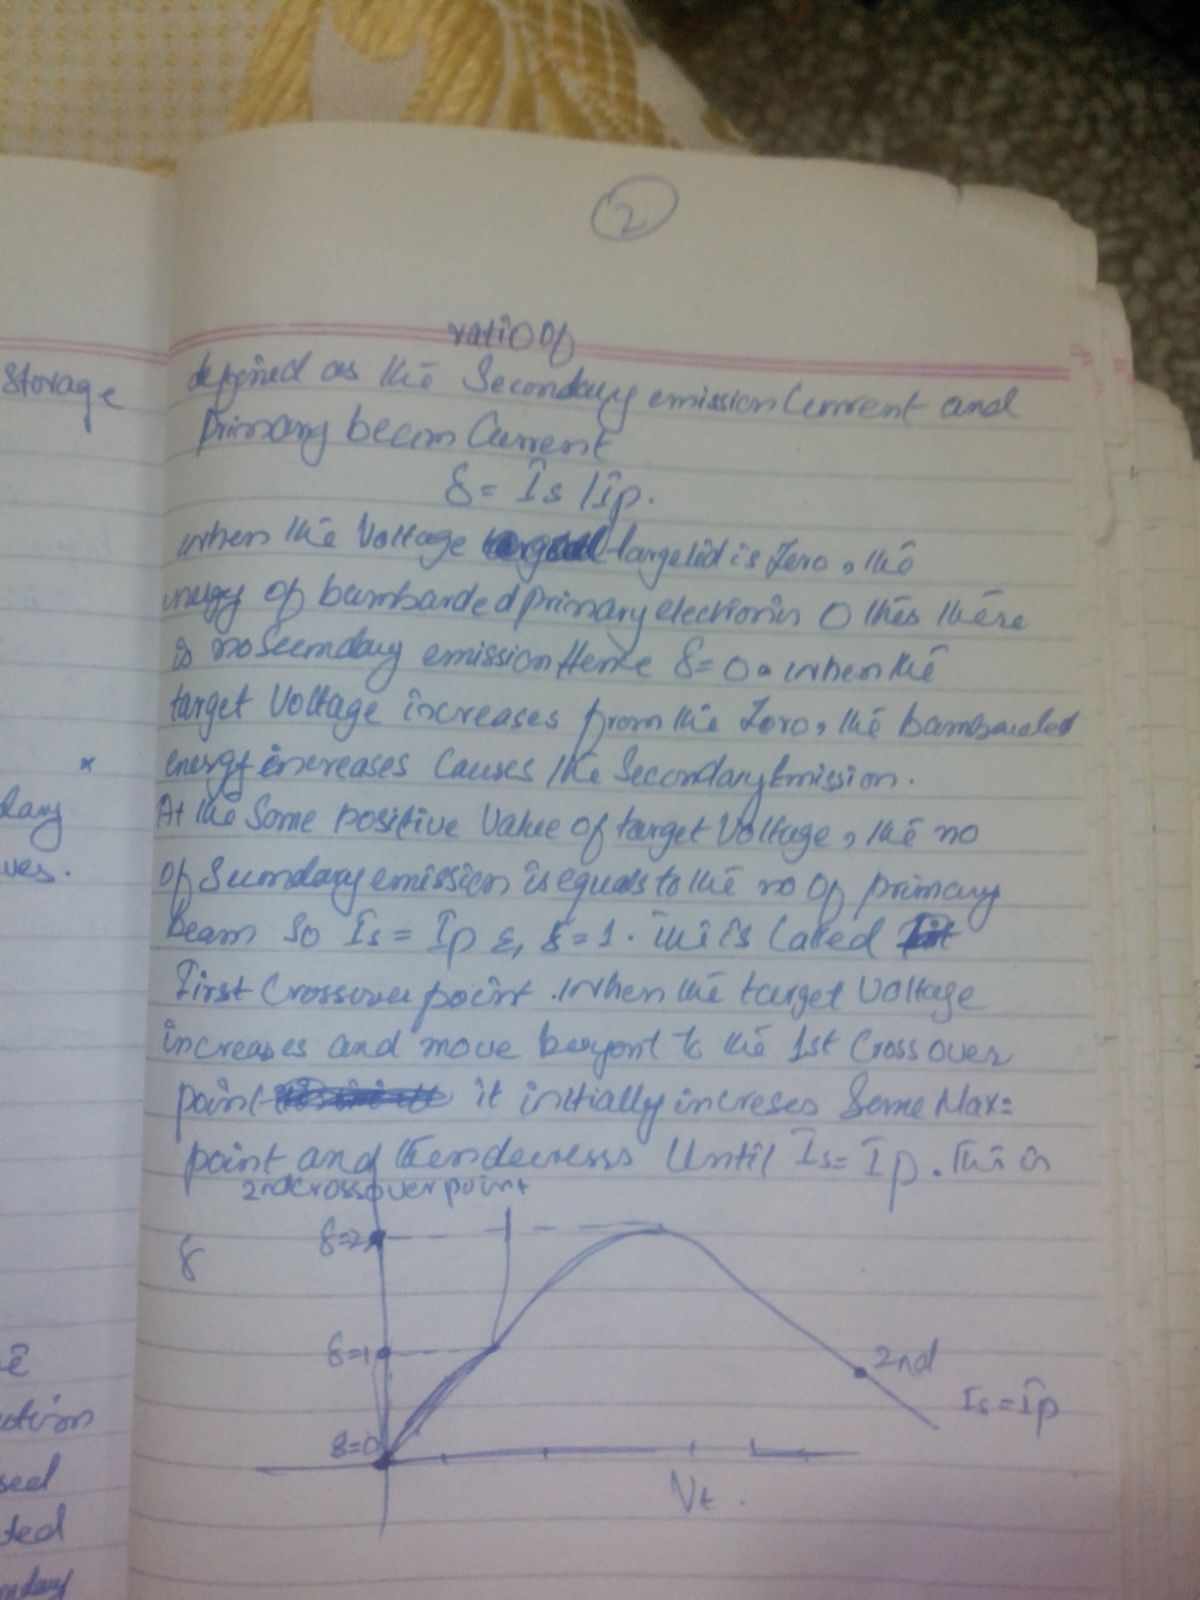 2
ratio of
defined as the Secondary emission Current and
Primary beam Current
δ = Is / Ip.
when the Voltage targeted is Zero, the
energy of bambarded primary electron is 0 this there
is no Secondary emission Hence δ = 0. when the
target Voltage increases from the Zoro, the bambarded
energy increases Causes the Secondary Emission.
At the Some positive Value of target Voltage, the no
of Secondary emission is equals to the no of primary
beam So Is = Ip & δ = 1. this is Called
First Crossover point. When the target Voltage
increases and move beyont to the 1st Cross over
point it initially increses Some Max=
point and then decresss Until Is = Ip. This is
2nd crossover point
δ
δ=2
δ=1
2nd
Is = Ip
δ=0
Vt.
Storage
x
dary
ves.
sed
ted
ndary